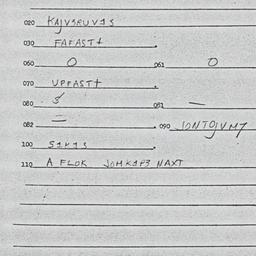 020 KAJVSRUVIS
030 FAFAST+
060 0 061 0
070 UPFAST+
080 5 081 —
082 = 090 IONTOJVM7
100 S1K1S
110 A FLOK JOMK1P3 NAXT